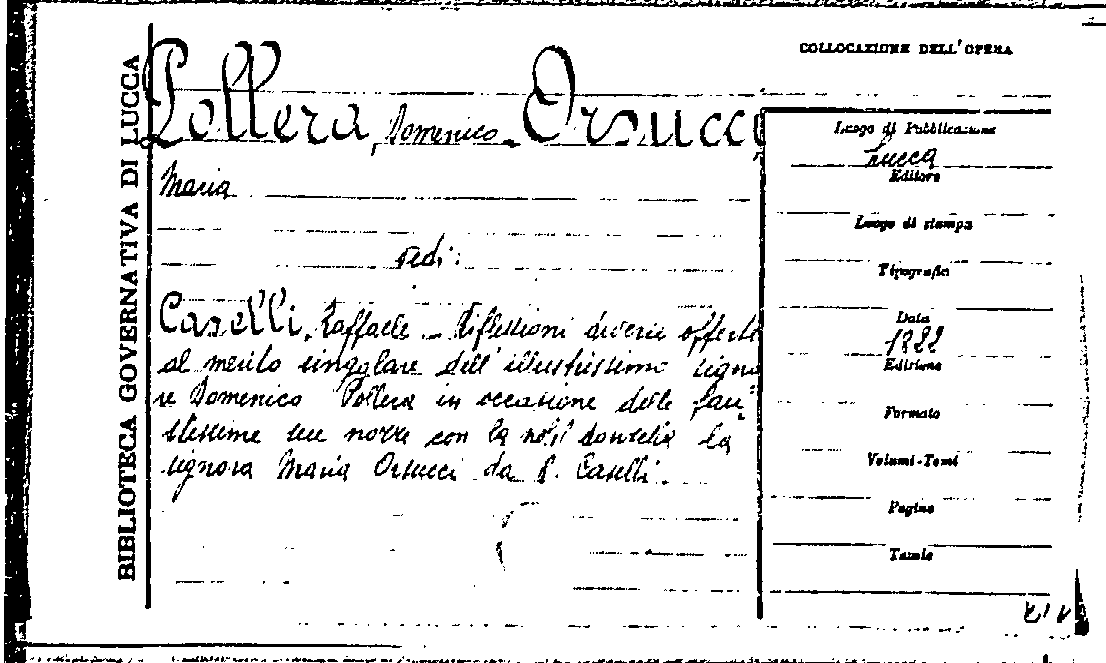 COLLOCAZIONE DELL'OPERA
BIBLIOTECA GOVERNATIVA DI LUCCA
Pollera, Domenico - Orsucci
Maria
vedi:
Caselli, Raffaele - Riflessioni diverse offerte
al merito singolare dell'illustrissimo signo
re Domenico Pollera in occasione delle fau=
stissime sue nozze con la nobil donzella la
signora Maria Orsucci da R. Caselli.
Luogo di Pubblicazione
Lucca
Editore
Luogo di stampa
Tipografia
Data
1822
Edizione
Formato
Volumi-Tomi
Pagine
Tavole